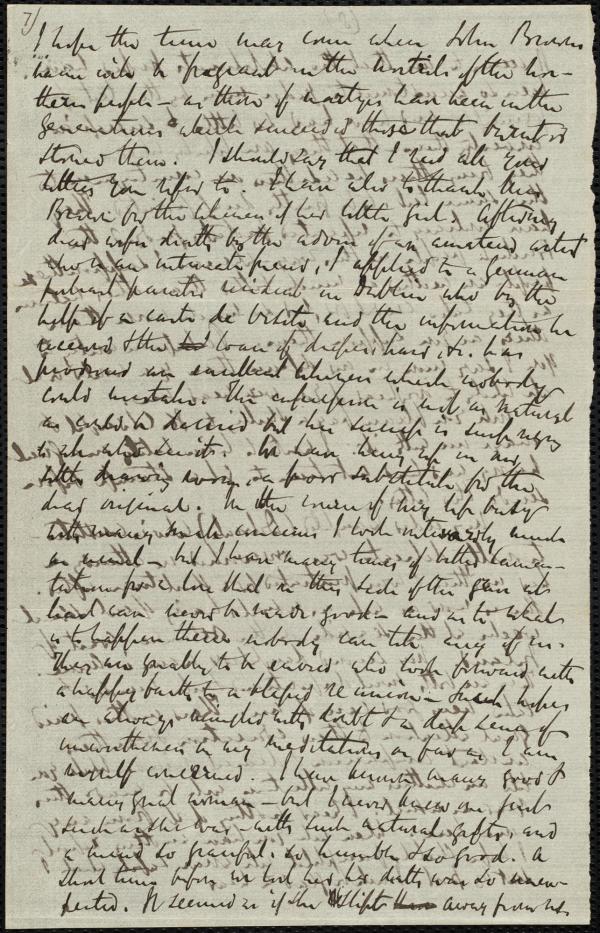 7/
I hope the time may come when John Brown's
name will be fragrant in the nostrils of the nor-
thern people - as those of martyrs have been in the
generations which succeeded those that burnt or
stoned them. I should say that I read all your
letters you refer to. I have also to thank Miss
Brown for the likeness of her little girl. After my
dear wife's death by the advice of an amateur artist
who is an intimate friend, I applied to a German
portrait painter resident in Dublin who by the
help of a carte de visite and the information he
received & the loan of dresses, hair, &c. has
produced an excellent likeness which nobody
could mistake. The expression is not as natural
as could be desired but her success is surprising
to all who see it. We have hung up in our
little drawing room, a poor substitute for the
dear original. In the course of my life busy
with many such concerns I look outwardly much
as usual - but I have many times of bitter lamen-
tation for a loss that on this side of the grave at
least can never be made good - and as to what
is to happen there nobody can tell any of us.
They are greatly to be envied who look forward with
a happy faith to a blessed reunion - Such hopes
are always mingled with doubt & a deep sense of
unworthiness in my meditations as far as I am
myself concerned. I have known many good &
many great women - but I never knew one just
such as she was - with such natural gifts, and
a mind so graceful, so humble & so good. A
short time before we lost her her death was so unex-
pected. It seemed as if she slipt away from us